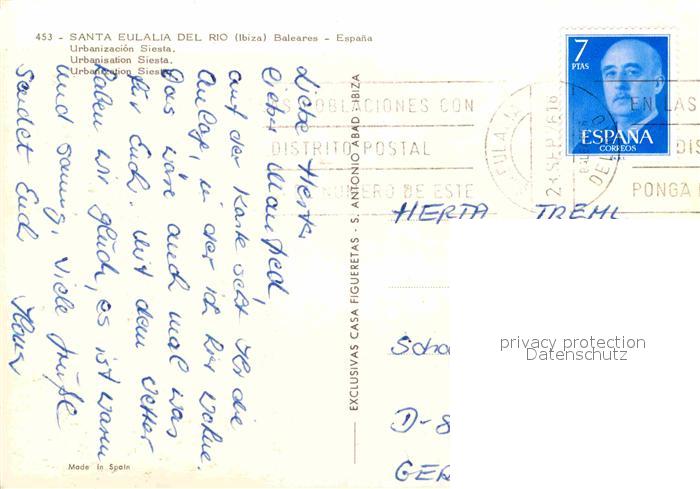 453 - SANTA EULALIA DEL RIO (Ibiza) Baleares - España
Urbanización Siesta.
Urbanisation Siesta.
Urbanization Siesta.
Liebe Herta,
lieber Manfred!
auf der Karte seht Ihr die
Anlage, in der ich hier wohne.
Das wäre auch mal was
für Euch. Mit dem Wetter
haben wir Glück, es ist warm
und sonnig. Viele Grüße
sendet Euch
Made in Spain
EXCLUSIVAS CASA FIGUERETAS - S. ANTONIO ABAD - IBIZA
7
PTAS
ESPAÑA
CORREOS
POBLACIONES CON
DISTRITO POSTAL
NUMERO DE ESTE
EN LAS
DIS
PONGA
HERTA TREML
Scha
D-8
GER
privacy protection
Datenschutz